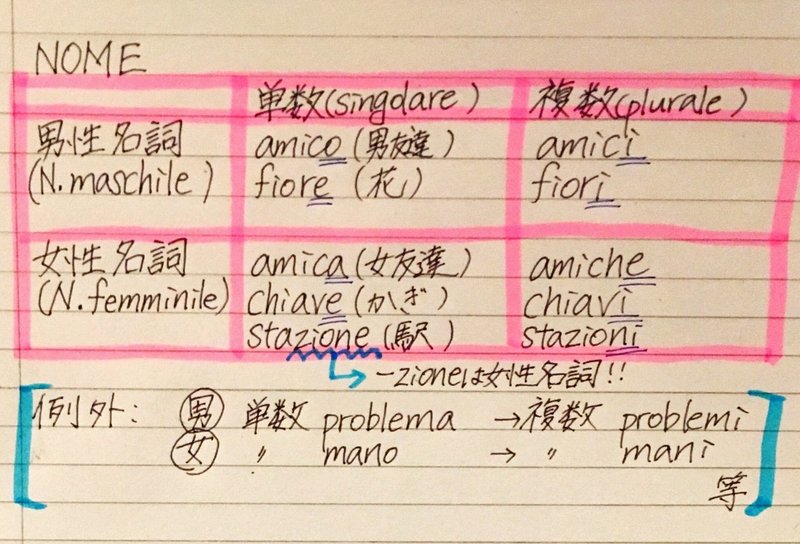 NOME
単数(singolare) 複数(plurale)
男性名詞 amico (男友達) amici
(N.maschile) fiore (花) fiori
女性名詞 amica (女友達) amiche
(N.femminile) chiave (かぎ) chiavi
stazione (駅) stazioni
-zioneは女性名詞!!
例外: 男 単数 problema →複数 problemi
女 〃 mano → 〃 mani
等